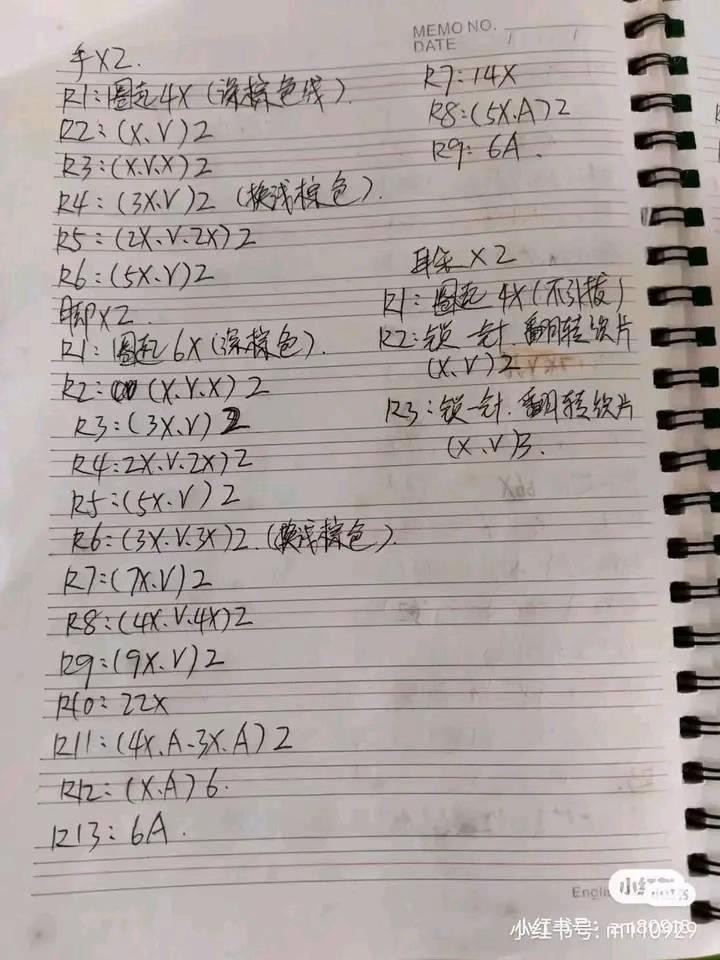 MEMO NO.
DATE / /
手X2.
R1:圈起4X(深棕色线).
R2:(X.V)2
R3:(X.V.X)2
R4:(3X.V)2 (换浅棕色).
R5:(2X.V.2X)2
R6:(5X.V)2
脚X2.
R1:圈起6X(深棕色).
R2:(X.V.X)2
R3:(3X.V)2
R4:2X.V.2X)2
R5:(5X.V)2
R6:(3X.V.3X)2.(换浅棕色).
R7:(7X.V)2
R8:(4X.V.4X)2
R9:(9X.V)2
R10:22X
R11:(4X.A.3X.A)2
R12:(X.A)6.
R13:6A.
R7:14X
R8:(5X.A)2
R9:6A.
耳朵X2
R1:圈起4X(不引拔)
R2:锁一针.翻转织片
(X.V)2
R3:锁一针.翻转织片
(X.V)3.
Engli
小红书号: